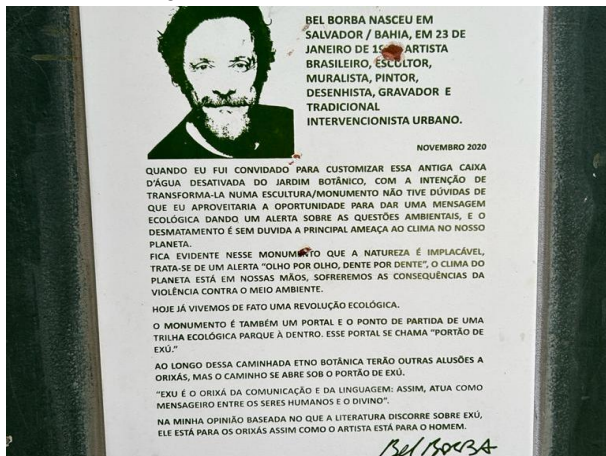 BEL BORBA NASCEU EM
SALVADOR / BAHIA, EM 23 DE
JANEIRO DE ARTISTA
BRASILEIRO, ESCULTOR,
MURALISTA, PINTOR,
DESENHISTA, GRAVADOR E
TRADICIONAL
INTERVENCIONISTA URBANO.
NOVEMBRO 2020
QUANDO EU FUI CONVIDADO PARA CUSTOMIZAR ESSA ANTIGA CAIXA
D'ÁGUA DESATIVADA DO JARDIM BOTÂNICO, COM A INTENÇÃO DE
TRANSFORMA-LA NUMA ESCULTURA/MONUMENTO NÃO TIVE DÚVIDAS DE
QUE EU APROVEITARIA A OPORTUNIDADE PARA DAR UMA MENSAGEM
ECOLÓGICA DANDO UM ALERTA SOBRE AS QUESTÕES AMBIENTAIS, E O
DESMATAMENTO É SEM DUVIDA A PRINCIPAL AMEAÇA AO CLIMA NO NOSSO
PLANETA.
FICA EVIDENTE NESSE MONUMENTO QUE A NATUREZA É IMPLACÁVEL,
TRATA-SE DE UM ALERTA "OLHO POR OLHO, DENTE POR DENTE", O CLIMA DO
PLANETA ESTÁ EM NOSSAS MÃOS, SOFREREMOS AS CONSEQUÊNCIAS DA
VIOLÊNCIA CONTRA O MEIO AMBIENTE.
HOJE JÁ VIVEMOS DE FATO UMA REVOLUÇÃO ECOLÓGICA.
O MONUMENTO É TAMBÉM UM PORTAL E O PONTO DE PARTIDA DE UMA
TRILHA ECOLÓGICA PARQUE À DENTRO. ESSE PORTAL SE CHAMA "PORTÃO DE
EXÚ."
AO LONGO DESSA CAMINHADA ETNO BOTÂNICA TERÃO OUTRAS ALUSÕES A
ORIXÁS, MAS O CAMINHO SE ABRE SOB O PORTÃO DE EXÚ.
"EXU É O ORIXÁ DA COMUNICAÇÃO E DA LINGUAGEM: ASSIM, ATUA COMO
MENSAGEIRO ENTRE OS SERES HUMANOS E O DIVINO".
NA MINHA OPINIÃO BASEADA NO QUE A LITERATURA DISCORRE SOBRE EXÚ,
ELE ESTÁ PARA OS ORIXÁS ASSIM COMO O ARTISTA ESTÁ PARA O HOMEM.
Bel BORBA